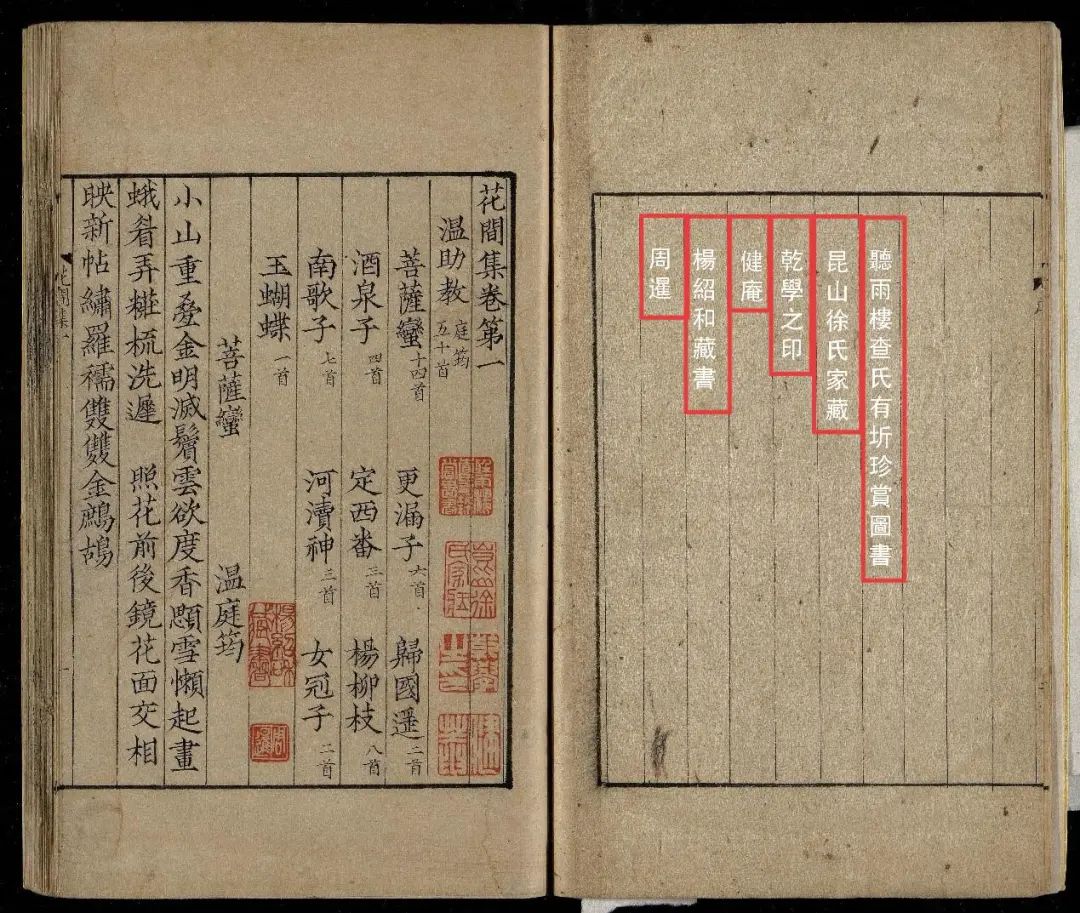 聽雨樓查氏有圻珍賞圖書
昆山徐氏家藏
乾學之印
健庵
楊紹和藏書
周暹
花間集卷第一
温助教 庭筠 五十首
菩薩蠻 十四首 更漏子 六首 歸國遥 二首
酒泉子 四首 定西番 三首 楊柳枝 八首
南歌子 七首 河瀆神 三首 女冠子 二首
玉蝴蝶 一首
菩薩蠻 温庭筠
小山重疊金明滅鬢雲欲度香顋雪懶起畫
蛾眉弄粧梳洗遲 照花前後鏡花面交相
映新帖繡羅襦雙雙金鷓鴣
花間集一
聽雨樓查氏有圻珍賞圖書
昆山徐氏家藏
乾學之印
健庵
楊紹和藏書
周暹